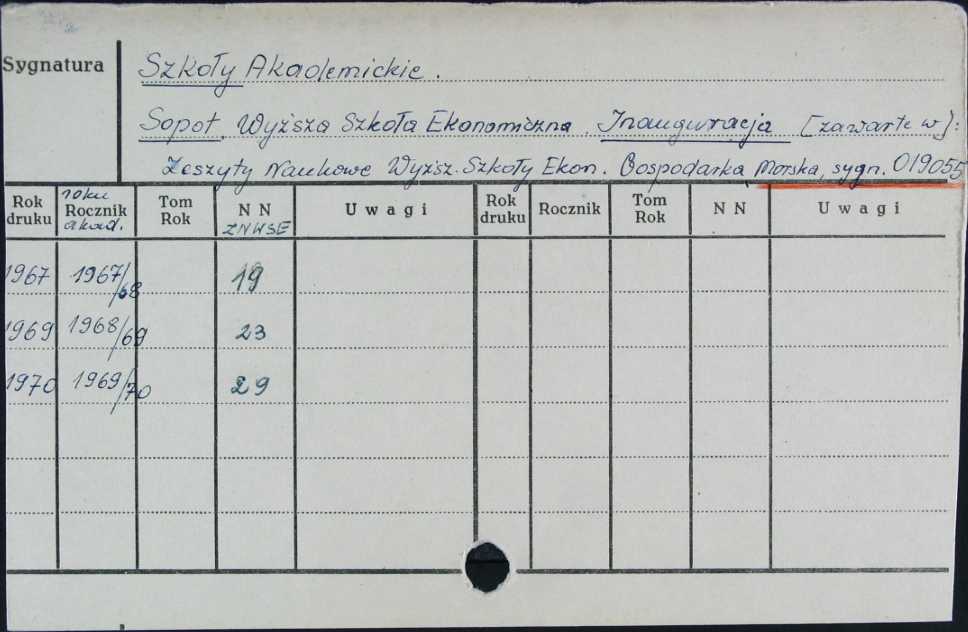 Sygnatura
Szkoły Akademickie.
Sopot. Wyższa Szkoła Ekonomiczna. Inauguracja [zawarte w]:
Zeszyty Naukowe Wyższ. Szkoły Ekon. Gospodarka Morska, sygn. 019055
Rok druku roku Rocznik akad. Tom Rok NN ZNWSE Uwagi Rok druku Rocznik Tom Rok NN Uwagi
1967 1967/68 19
1969 1968/69 23
1970 1969/70 29